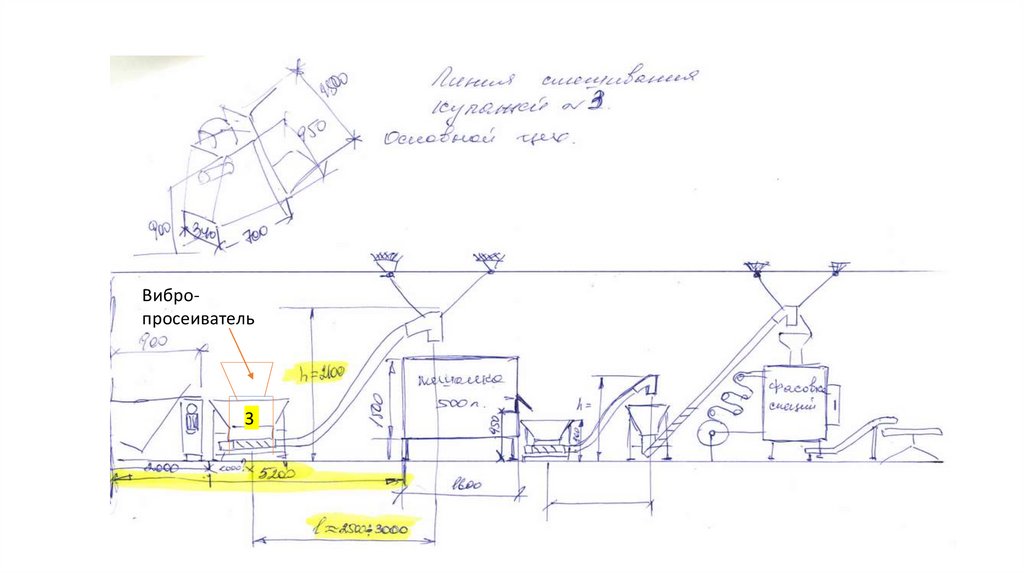 Линия смешивания
купажей № 3.
Основной цех.
1800
950
900
340
700
Вибро-
просеиватель
900
h=2100
мешалка
500 л.
1500
950
h=
фасовка
специй
3
2000
1000?
5200
1600
l = 2500÷3000